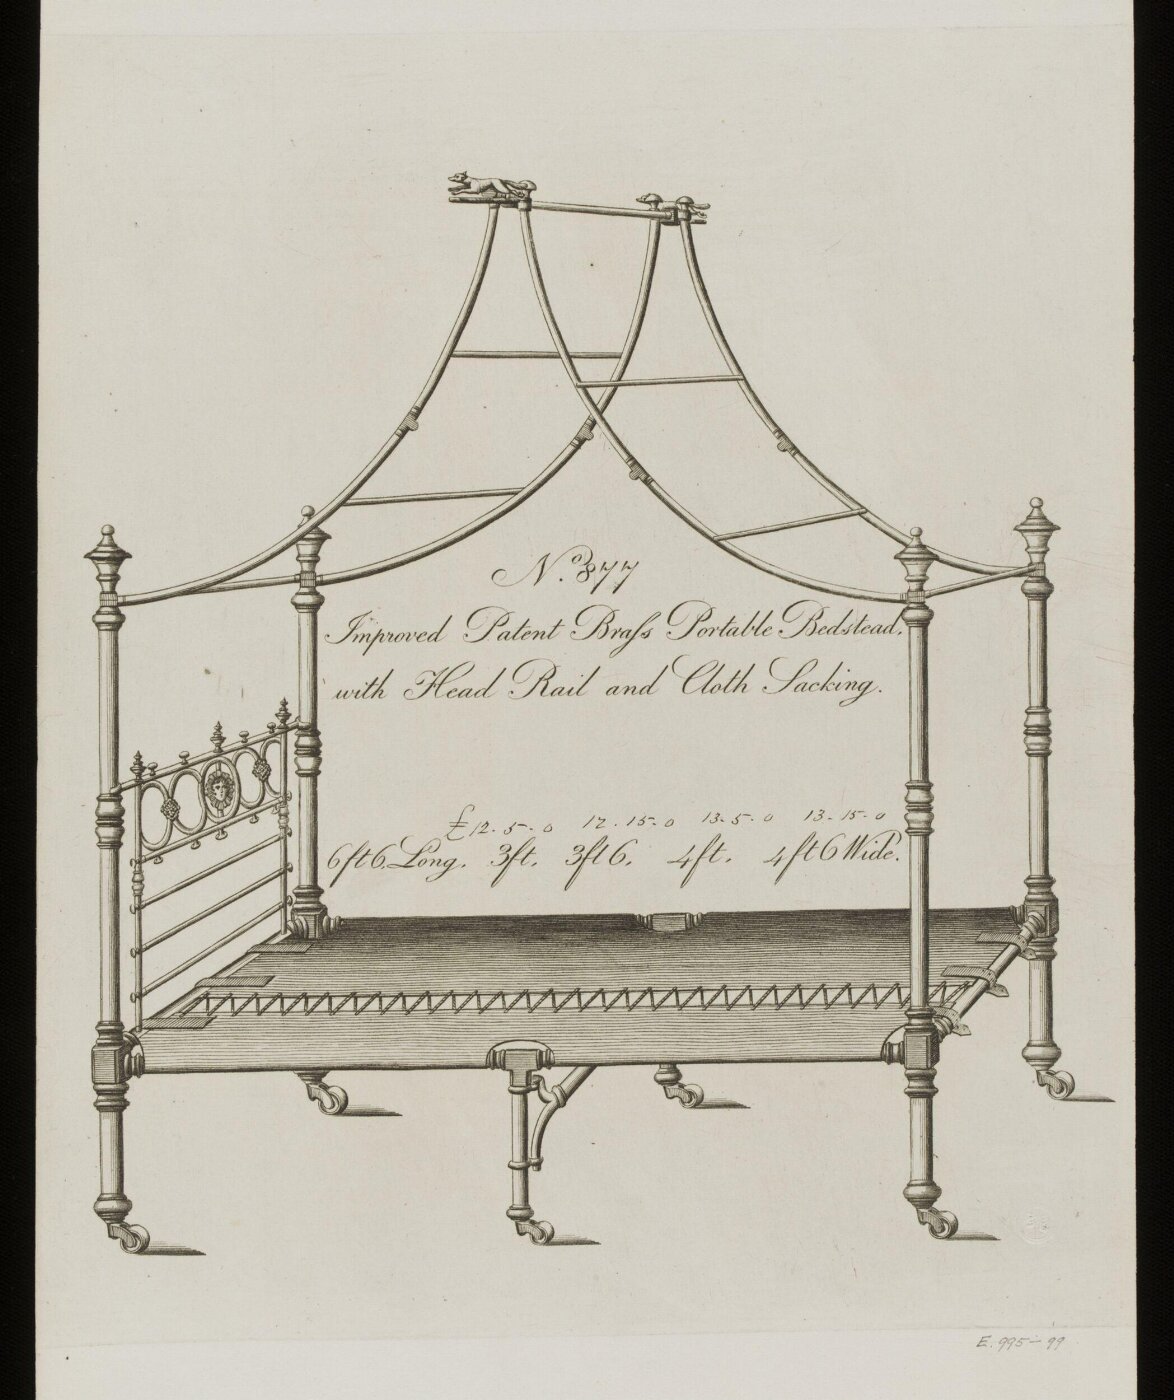 No. 877
Improved Patent Braſs Portable Bedstead,
with Head Rail and Cloth Sacking.
£12-5-0 12-15-0 13-5-0 13-15-0
6ft 6 Long. 3ft. 3ft 6. 4ft. 4ft 6 Wide.
E. 995-99